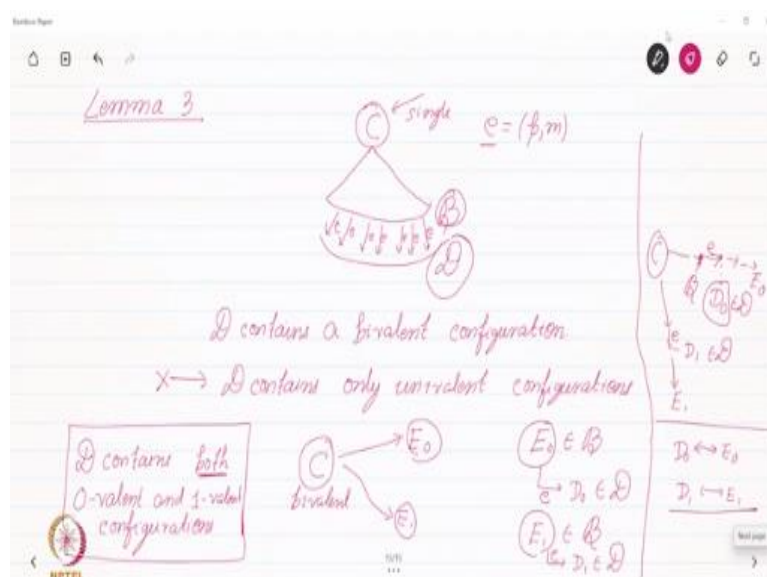 Bamboo Paper
Lemma 3
C
single
e = (p, m)
B
D
D contains a bivalent configuration.
X → D contains only univalent configurations
D contains both
0-valent and 1-valent
configurations
C
bivalent
E₀
E₁
E₀ ∈ B
e → D₀ ∈ D
E₁ ∈ B
e → D₁ ∈ D
C
e
E₀
B D₀ ∈ D
e D₁ ∈ D
E₁
D₀ ↔ E₀
D₁ ↔ E₁
Next page
NPTEL